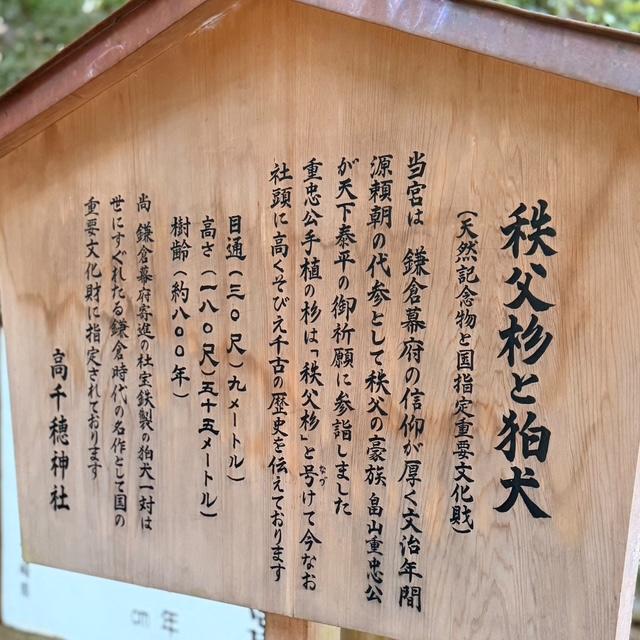 秩父杉と狛犬
(天然記念物と国指定重要文化財)
当宮は 鎌倉幕府の信仰が厚く文治年間
源頼朝の代参として秩父の豪族 畠山重忠公
が天下泰平の御祈願に参詣しました
重忠公手植の杉は「秩父杉」と号けて今なお
なづ
社頭に高くそびえ千古の歴史を伝えております
目通(三〇尺)九メートル)
高さ(一八〇尺)五十五メートル)
樹齢(約八〇〇年)
尚 鎌倉幕府寄進の社宝鉄製の狛犬一対は
世にすぐれたる鎌倉時代の名作として国の
重要文化財に指定されております
高千穂神社
cm 年